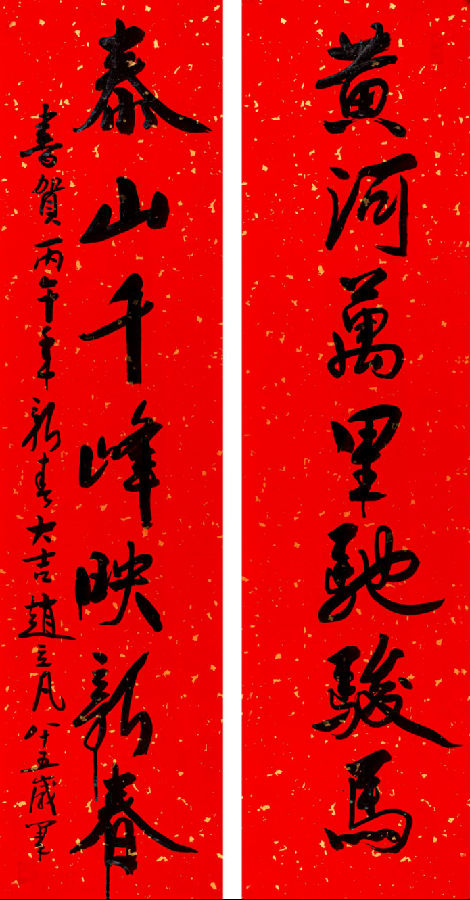 黄河萬里馳駿馬
泰山千峰映新春
書賀丙午年新春大吉趙立凡八十五歲筆